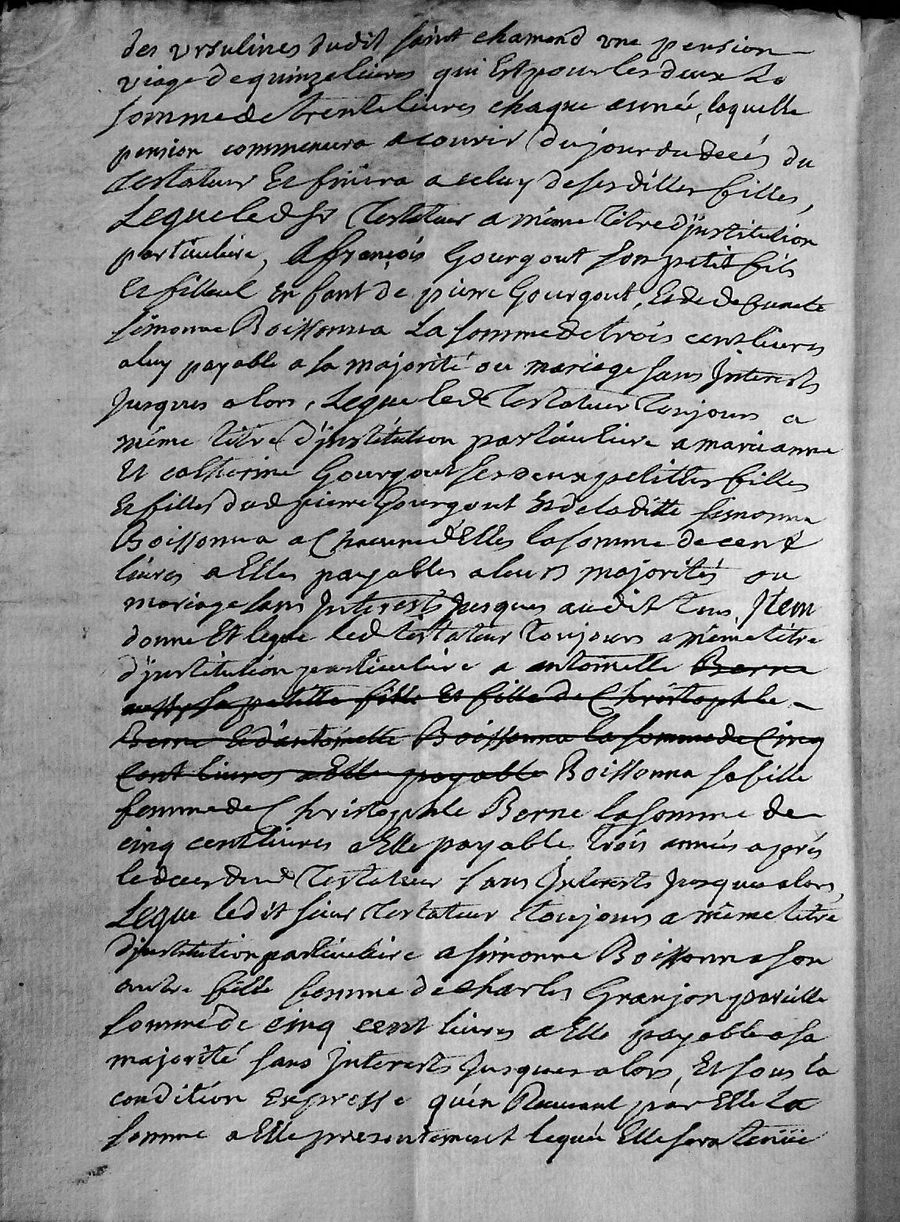 des Ursulines dudit saint chamond une pension
viage de quinze livres qui Est pour les deux La
somme de trente livres chaque année, laquelle
pension commencera a courir du jour du decés du
testateur Et finira a celuy de ses dittes filles,
Legue led sr Testateur a même titre d'jnstitution
particuliere, A françois Gourgout son petit fils
Et filleul Enfant de pierre Gourgout, Et de defunte
simonne Boissonna La somme de trois cent livres
a luy payable a sa majorité ou mariage sans Jnterests
Jusques alors, Legue led Testateur Toujours a
même titre d'jnstitution particuliere a marianne
Et catherine Gourgout ses deux petittes filles
Et filles dud pierre Gourgout Et de laditte simonne
Boissonna a Chacune d'Elles la somme de cent
livres a Elles payables a leurs majorités ou
mariage sans Jnterests Jusques audit tems, Jtem
donne Et legue led testateur Toujours a même titre
d'jnstitution particuliere a antoinette Berne
aussy sa petitte fille Et fille de Christophle
Berne Et d'antoinette Boissonna la somme de Cinq
Cent livres a Elle payable Boissonna sa fille
femme de Christophle Berne la somme de
cinq cent livres a Elle payable trois années aprés
le deces dud Testateur sans Jnterests Jusques alors,
Legue ledit sieur Testateur Toujours a même titre
d'jnstitution particuliere a simonne Boissonna son
autre fille femme de charles Granjon pareille
somme de cinq cent livres a Elle payable a sa
majorité sans jnterests Jusques alors, Et sous la
condition Expresse qu'en Recevant par Elle La
somme a Elle presentement leguée Elle sera tenüe